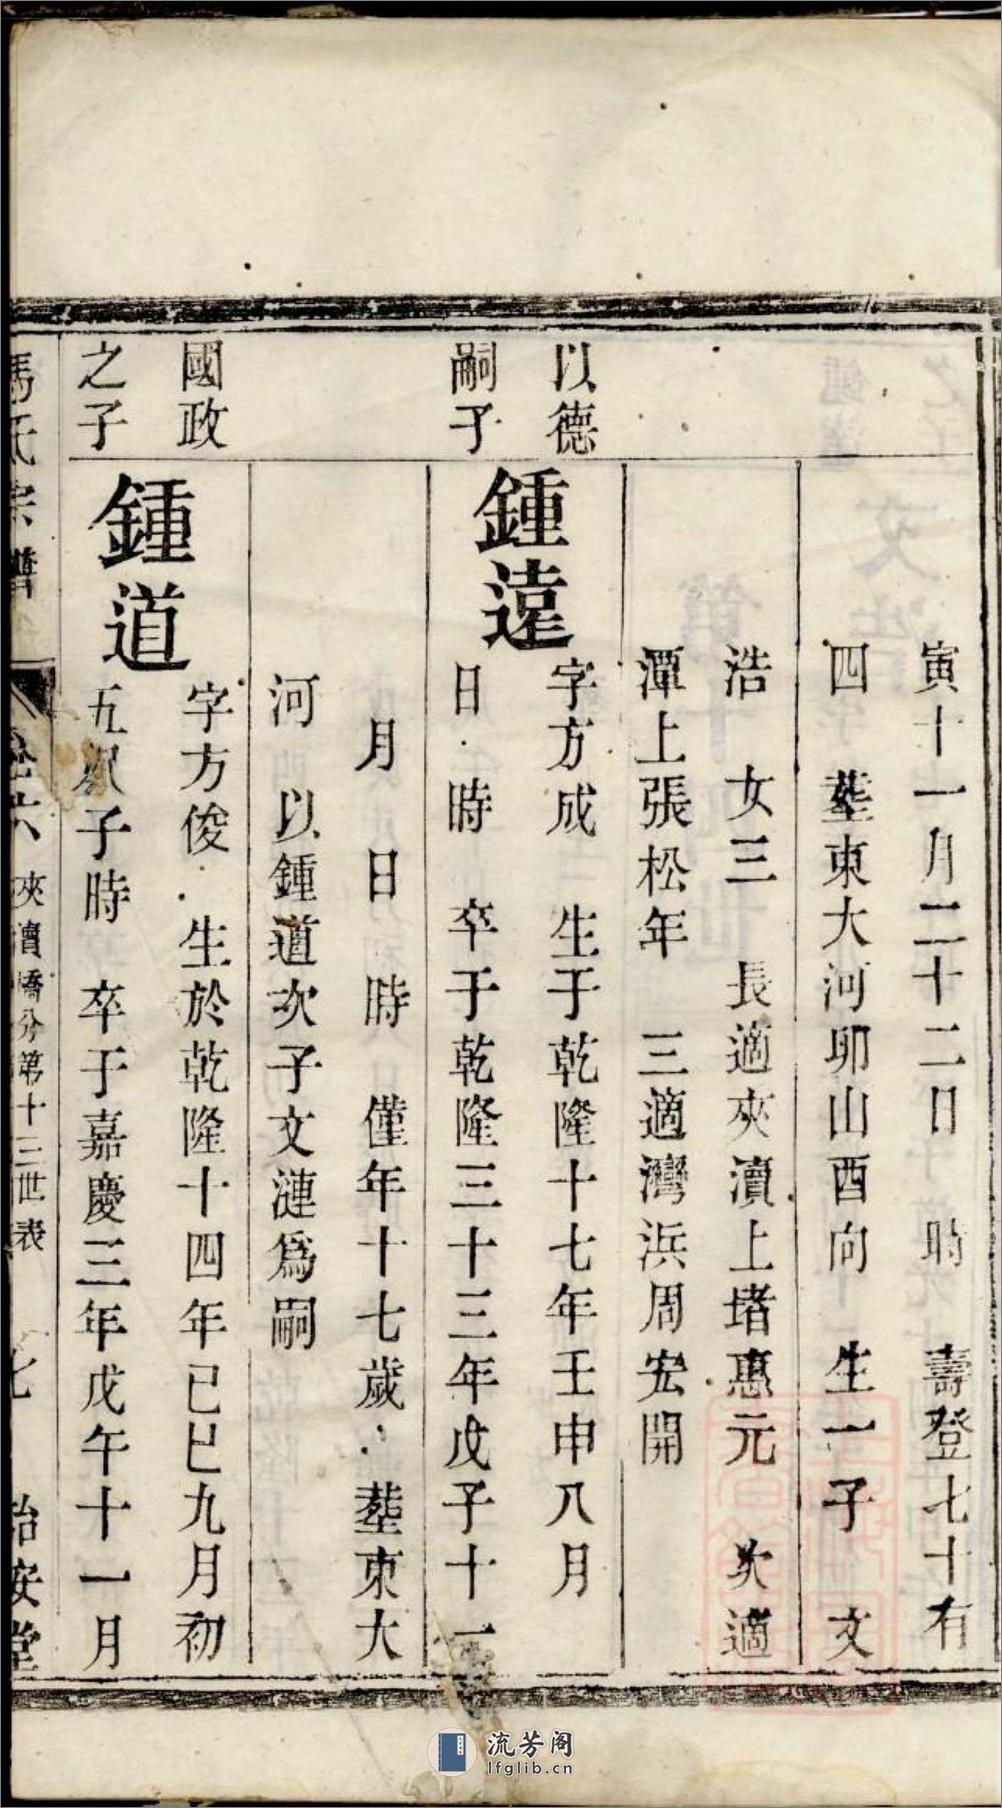 寅十一月二十二日 時 壽登七十有
四 塟東大河卯山酉向 生一子 文
浩 女三 長適夾瀆上堵惠元 次適
潭上張松年 三適灣浜周宏開
以德
嗣子
鍾遠
字方成 生于乾隆十七年壬申八月
日 時 卒于乾隆三十三年戊子十一
月 日 時 僅年十七歲 塟東大
河 以鍾道次子文漣爲嗣
國政
之子
鍾道
字方俊 生於乾隆十四年己巳九月初
五 子時 卒于嘉慶三年戊午十一月
馮氏宗譜
卷六 夾瀆橋分第十三世表 七 治安堂
流芳阁
lfglib.cn